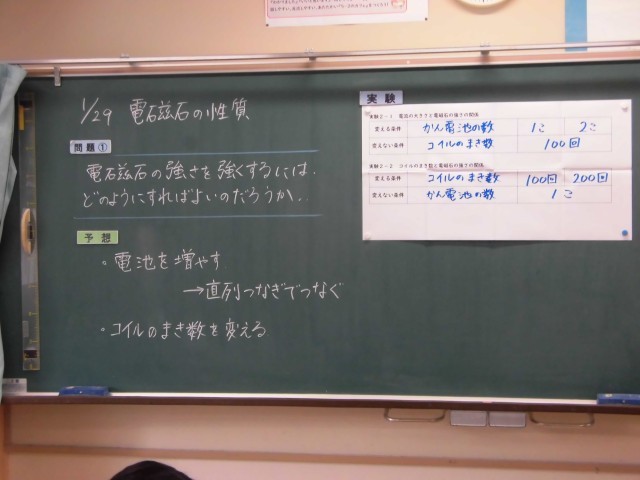 1/29 電石磁石の性質
問題①
電石磁石の強さを強くするには、
どのようにすればよいのだろうか。
予想
・電池を増やす
→直列つなぎでつなぐ
・コイルのまき数を変える
実験
実験2-1 電流の大きさと電磁石の強さの関係
変える条件 かん電池の数 1こ 2こ
変えない条件 コイルのまき数 100回
実験2-2 コイルのまき数と電磁石の強さの関係
変える条件 コイルのまき数 100回 200回
変えない条件 かん電池の数 1こ